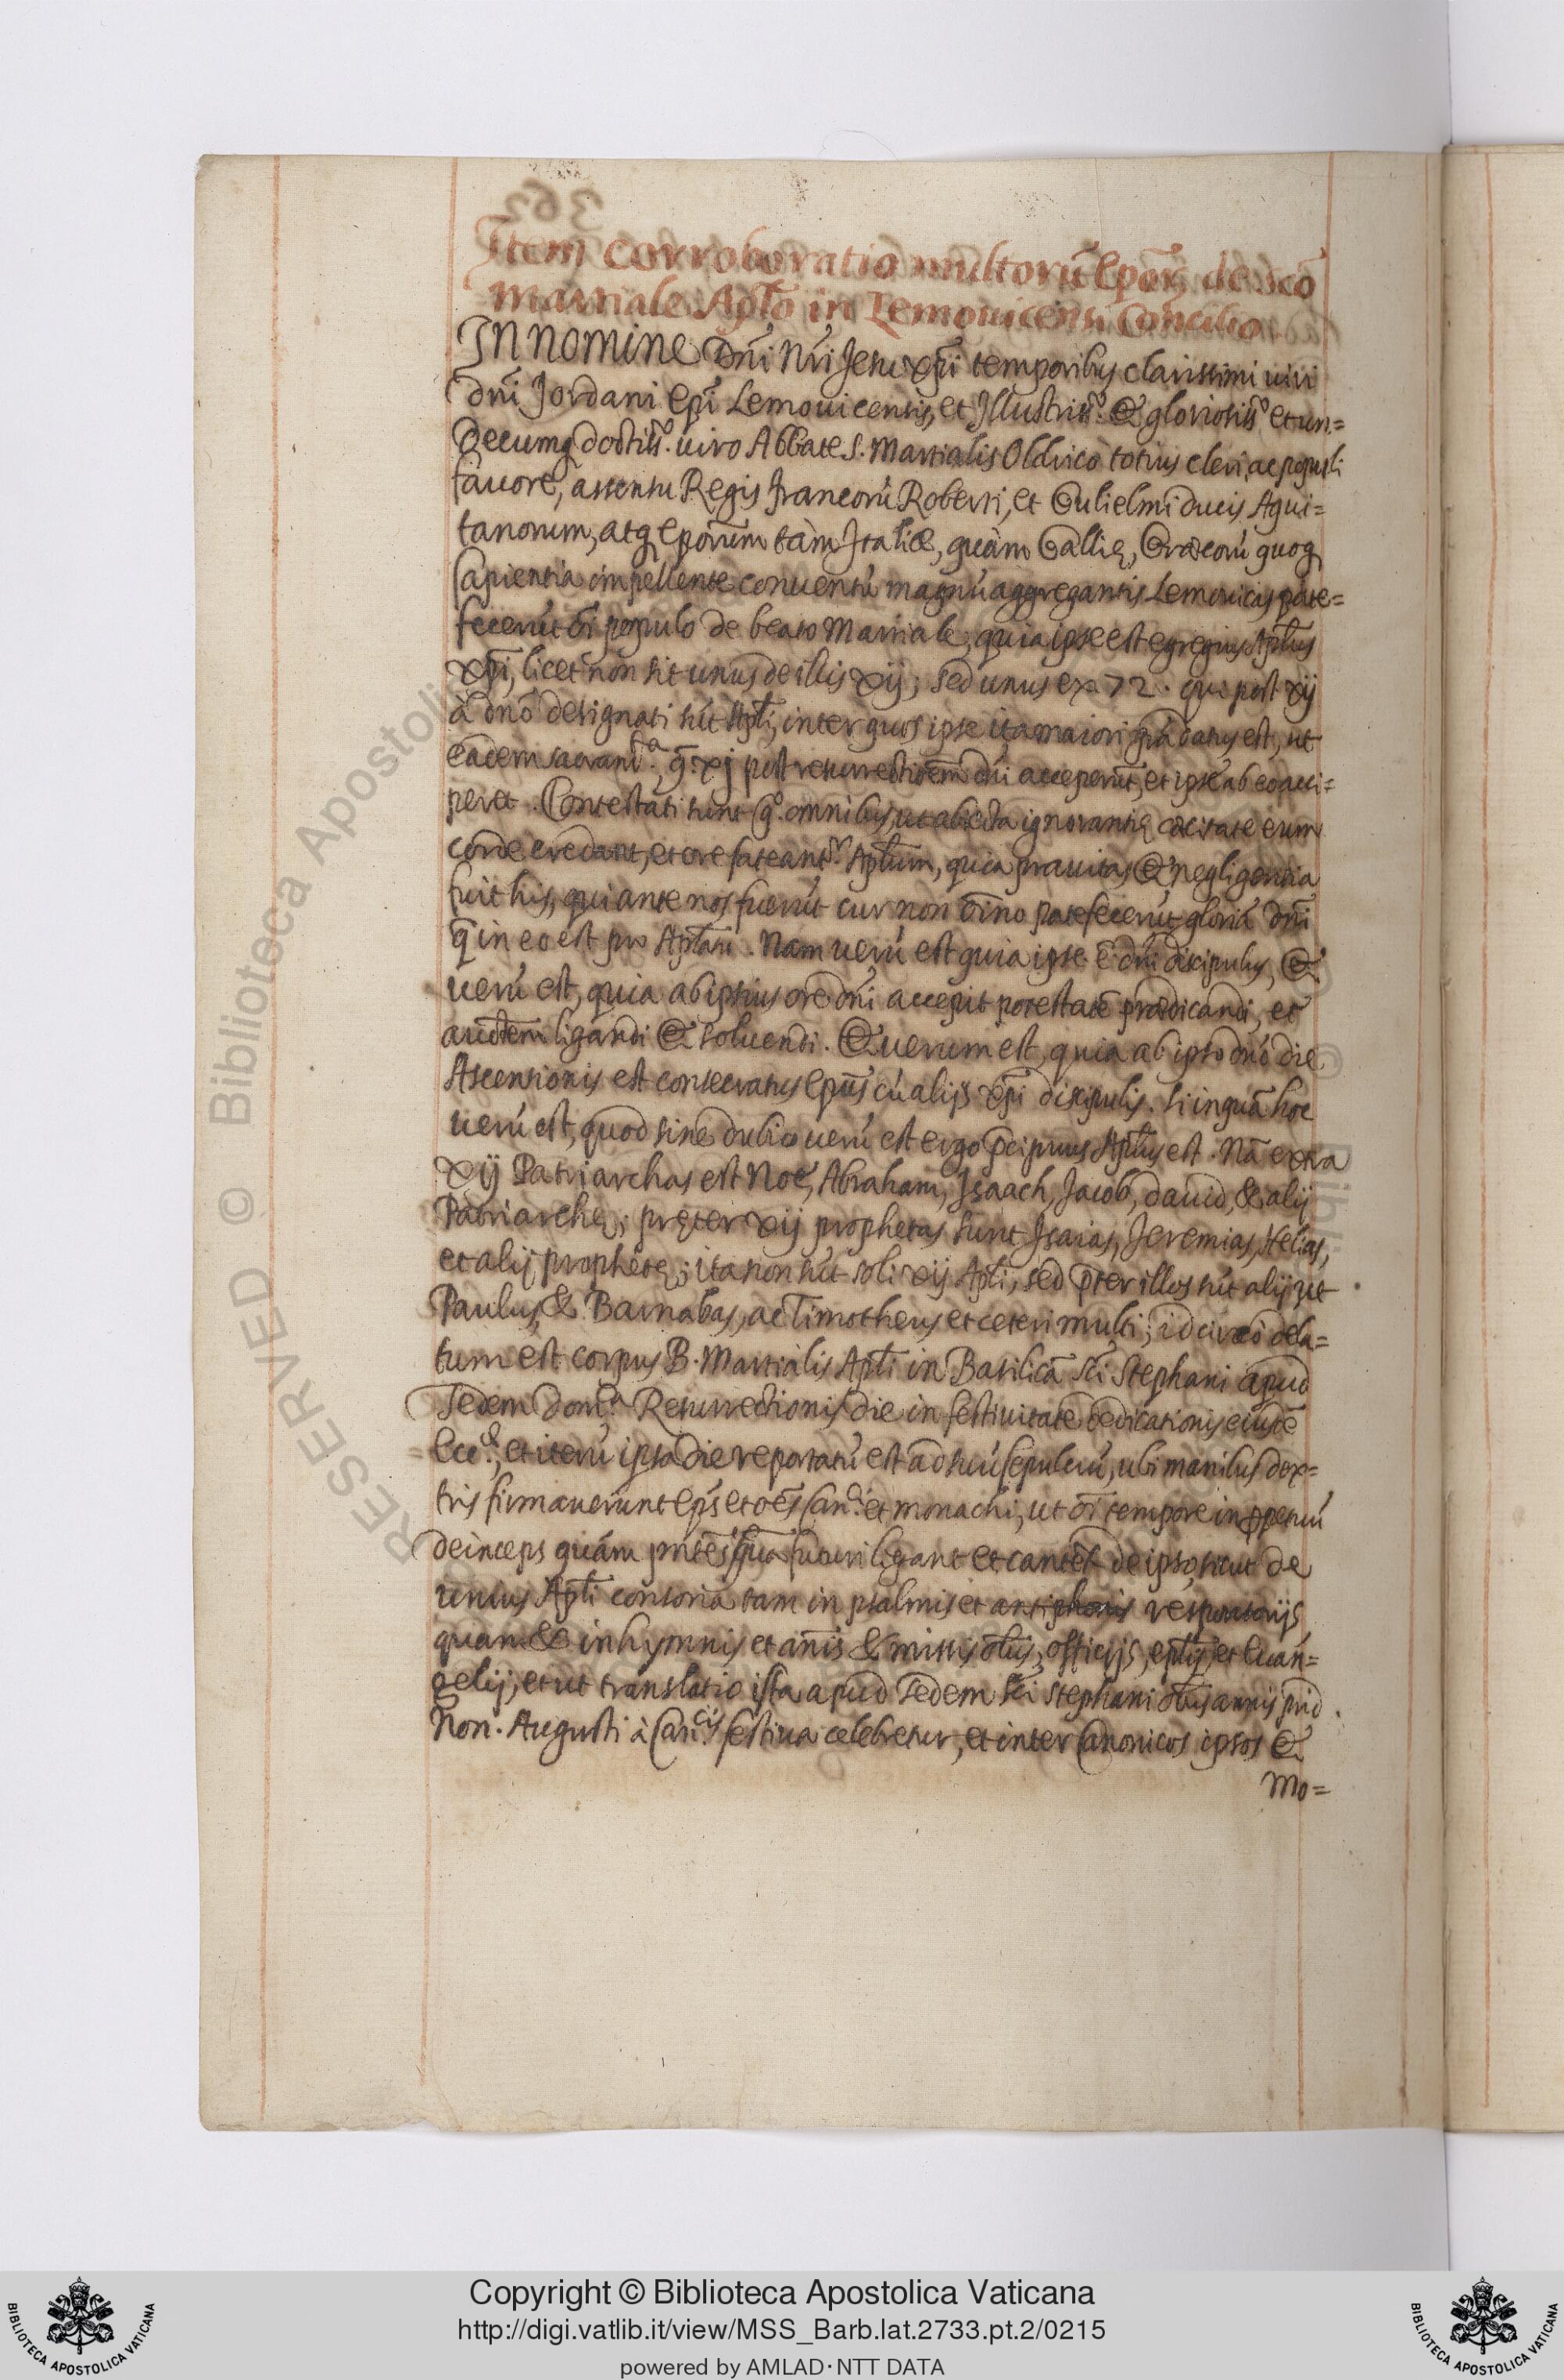 Item Corroboratio multorũ Epõrȝ de scõ
Martiale Aplõ in Lemouicensi Concilio
IN NOMINE Dñi Nr̃i Jesu Xp̃i temporibus clarissimi uiri
dñi Jordani Ep̃i Lemouicensis, et Illustriss.º & gloriosissº et un=
decumq doctiss.º uiro Abbate S. Martialis Oldrico totius cleri, ac populi
fauore, assensu Regis francorũ Roberti, et Gulielmi ducis Aqui=
tanorum, atq Eporum tàm Italiæ, quàm Gallię, Græcorũ quoq
sapientia impellente conuentũ magnũ aggregantis Lemouicas pate=
fecerũt õi populo de beato Martiale, quia ipse est egregius Aplus
Xp̃i, licet non sit unus de illis xij; sed unus ex 72. qui post xij
à dnõ designati sũt Apl̃i, inter quos ipse ita maiori grã datus est, ut
eadem sacramᵗᵃ, q̃. xj post resurrectioẽm dñi acceperũt, et ipse ab eo acci=
peret. Contestati sunt g.º omnibus, ut abiecta ignorantię cæcitate eum
corde credant, et ore fateantʳ Aplum, quia prauitas & negligentia
fuit his, qui ante nos fuerũt cur non õino patefecerũt gloriã dñi
q̃ in eo est pro Aplãtu. Nam uerũ est quia ipse ẽ dñi discipulus, &
uerũ est, quia ab ipsius ore dñi accepit potestatẽ prædicandi, et
auctem ligandi & soluendi. & uerum est, quia ab ipso dnõ die
Ascensionis est consecratus Ep̃us cũ alijs Xp̃i discipulis. Si inquã hoc
uerũ est, quod sine dubio uerũ est ergo p̃cipuus Aplus est. Nã extra
xij Patriarchas est Noè, Abraham, Isaach, Jacob, dauid, & alij
Patriarchę; pręter xij prophetas sunt Isaias, Jeremias, Helias,
et alij prophetę; ita non sũt soli xij Apl̃i, sed p̃ter illos sũt alij ut
Paulus, & Barnabas, ac Timotheus et ceteri multi; idcirco dela=
tum est corpus B. Martialis Apl̃i in Basilicã Sc̃i Stephani apud
Sedem domᶜᵃ Resurrectionis die in festiuitate dedicationis eiusdẽ
Eccᵃ, et iterũ ipsa die reportatũ est ad suũ sepulcrũ, ubi manibus dex=
tris firmauerunt Ep̃s et oẽs Canᶜⁱ et monachi, ut õi tempore in ꝑpetuũ
deinceps quám pñtes quã futuri legant et cantẽt de ipso, sicut de
unius Apl̃i consona tam in psalmis et antiphonis responsorijs
quàm & in hymnis et añis & missis oĩbus, officijs, eplis, et Euan=
gelij, et ut translatio ista apud Sedem Sc̃i Stephani oĩbus annis prid.
Non. Augusti à Canᶜⁱˢ festiua celebretur, et inter Canonicos ipsos &
Mo=
Copyright © Biblioteca Apostolica Vaticana
http://digi.vatlib.it/view/MSS_Barb.lat.2733.pt.2/0215
powered by AMLAD·NTT DATA
BIBLIOTECA APOSTOLICA VATICANA
BIBLIOTECA APOSTOLICA VATICANA